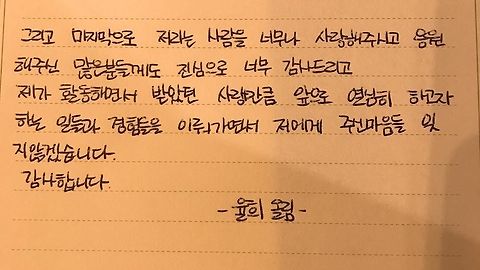 그리고 마지막으로 저라는 사람을 너무나 사랑해주시고 응원
해주신 많은분들께도 진심으로 너무 감사드리고
제가 활동해면서 받았던 사랑만큼 앞으로 열심히 하고자
하는 일들과 경험들을 이뤄가면서 저에게 주신마음들 잊
지않겠습니다.
감사합니다.
- 율희 올림 -